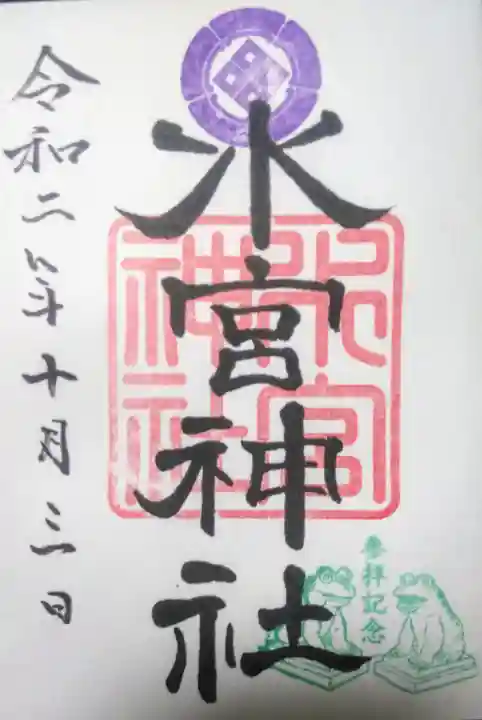 水宮神社
水宮神社
参拝記念
令和二年十月三日